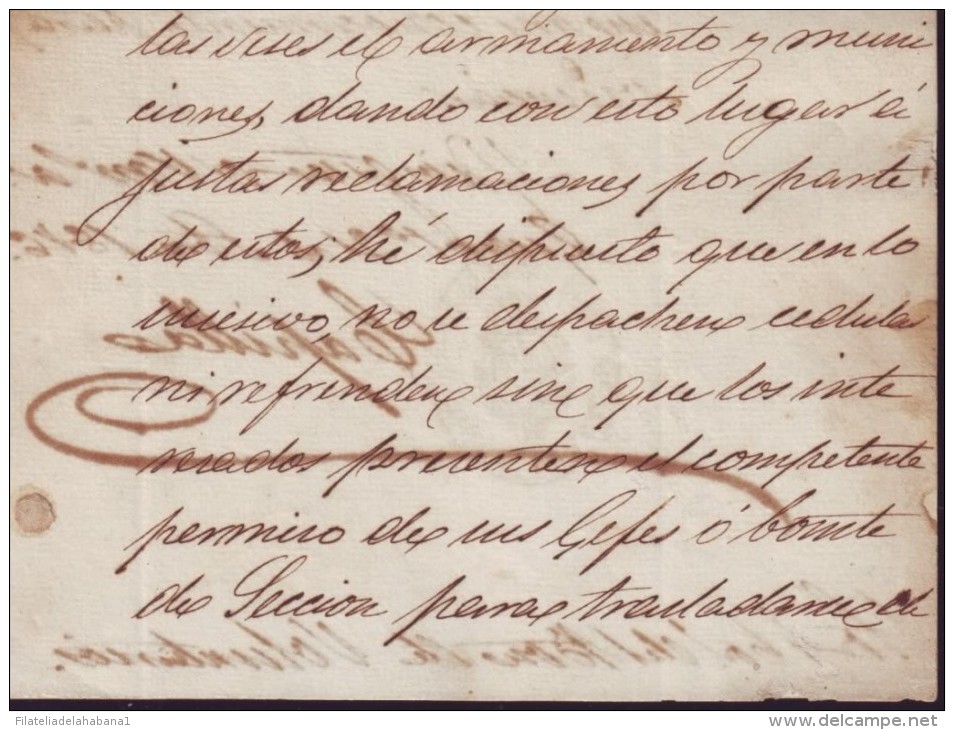 las veses el armamento y muni
ciones, dando con esto lugar á
justas reclamaciones por parte
de estos; hé dispuesto que en lo
susesivo, no se despachen cedulas
ni refrenden sin que los inte
resados presenten el competente
permiso de sus Gefes ó
de Seccion para trasladarse de
Filateliadelahabana1
www.delcampe.net